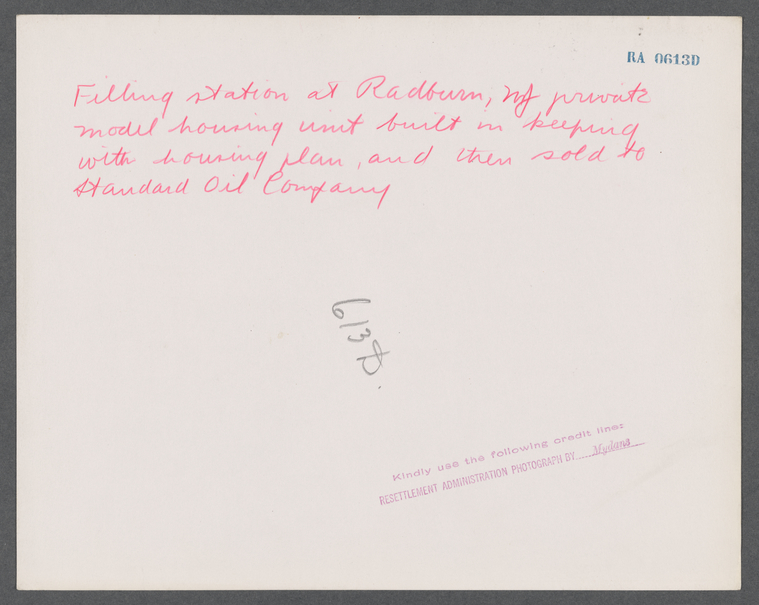 RA 0613D
Filling station at Radburn, NJ private
model housing unit built in keeping
with housing plan, and then sold to
Standard Oil Company
613D.
Kindly use the following credit line:
RESETTLEMENT ADMINISTRATION PHOTOGRAPH BY Mydans